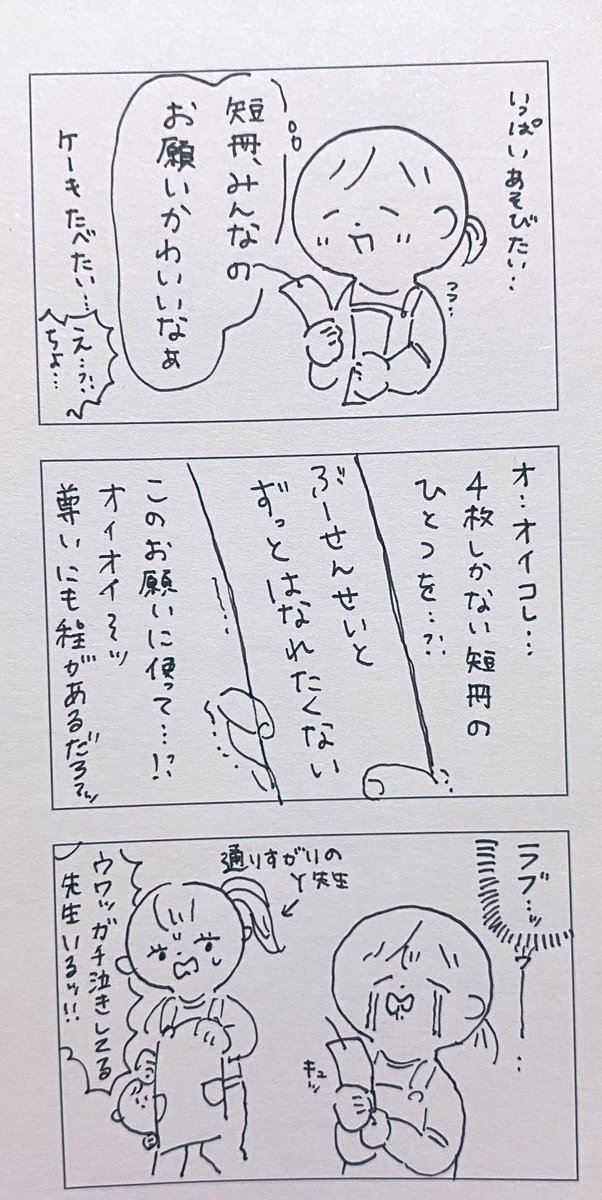 いっぱいあそびたい…
フフ…
短冊、みんなの
お願いかわいいなぁ
ケーキたべたい…
え…?!
ちょ…
オ…オイコレ…
4枚しかない短冊の
ひとつを…?!
ぶーせんせいと
ずっとはなれたくない
このお願いに使って…!?
オイオイ〜ッ
尊いにも程があるだろてッ
ラブ…ッ
ゥー…
キュッ
通りすがりの
Y先生
ウワッガチ泣きしてる
先生いるッ!!